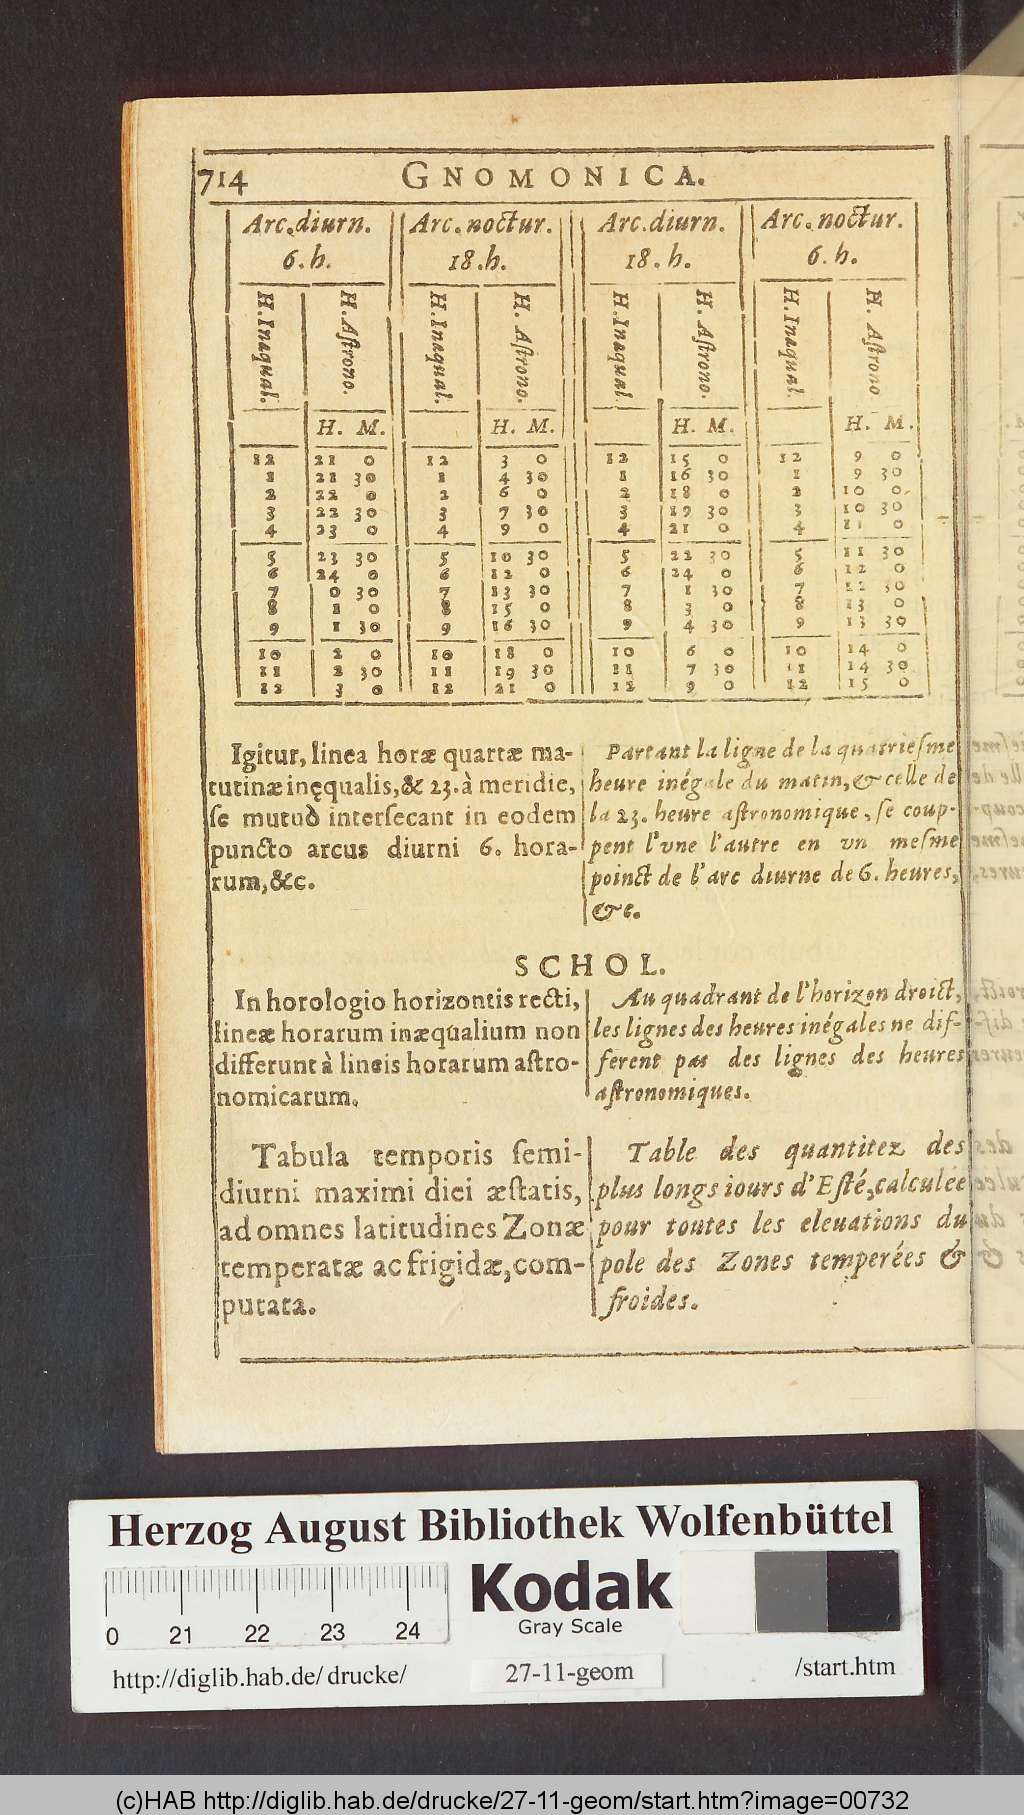 714 GNOMONICA.
Arc. diurn. Arc. noctur. Arc. diurn. Arc. noctur.
6. h. 18. h. 18. h. 6. h.
H. Inæqual. H. Aſtrono. H. Inæqual. H. Aſtrono. H. Inæqual. H. Aſtrono. H. Inæqual. H. Aſtrono
H. M. H. M. H. M. H. M.
12 21 0 12 3 0 12 15 0 12 9 0
1 21 30 1 4 30 1 16 30 1 9 30
2 22 0 2 6 0 2 18 0 2 10 0
3 22 30 3 7 30 3 19 30 3 10 30
4 23 0 4 9 0 4 21 0 4 11 0
5 23 30 5 10 30 5 22 30 5 11 30
6 24 0 6 12 0 6 24 0 6 12 0
7 0 30 7 13 30 7 1 30 7 12 30
8 1 0 8 15 0 8 3 0 8 13 0
9 1 30 9 16 30 9 4 30 9 13 30
10 2 0 10 18 0 10 6 0 10 14 0
11 2 30 11 19 30 11 7 30 11 14 30
12 3 0 12 21 0 12 9 0 12 15 0
Igitur, linea horæ quartæ ma-
tutinæ inęqualis, & 23. à meridie,
ſe mutuò interſecant in eodem
puncto arcus diurni 6. hora-
rum, &c.
Partant la ligne de la quatrieſme
heure inégale du matin, & celle de
la 23. heure aſtronomique, ſe coup-
pent l'vne l'autre en vn meſme
poinct de l'arc diurne de 6. heures,
&c.
SCHOL.
In horologio horizontis recti,
lineæ horarum inæqualium non
differunt à lineis horarum aſtro-
nomicarum.
Au quadrant de l'horizon droict,
les lignes des heures inégales ne dif-
ferent pas des lignes des heures
aſtronomiques.
Tabula temporis ſemi-
diurni maximi diei æſtatis,
ad omnes latitudines Zonæ
temperatæ ac frigidæ, com-
putata.
Table des quantitez des
plus longs iours d'Eſté, calculée
pour toutes les eleuations du
pole des Zones temperées &
froides.
Herzog August Bibliothek Wolfenbüttel
0 21 22 23 24
Kodak
Gray Scale
http://diglib.hab.de/drucke/ 27-11-geom /start.htm
(c)HAB http://diglib.hab.de/drucke/27-11-geom/start.htm?image=00732